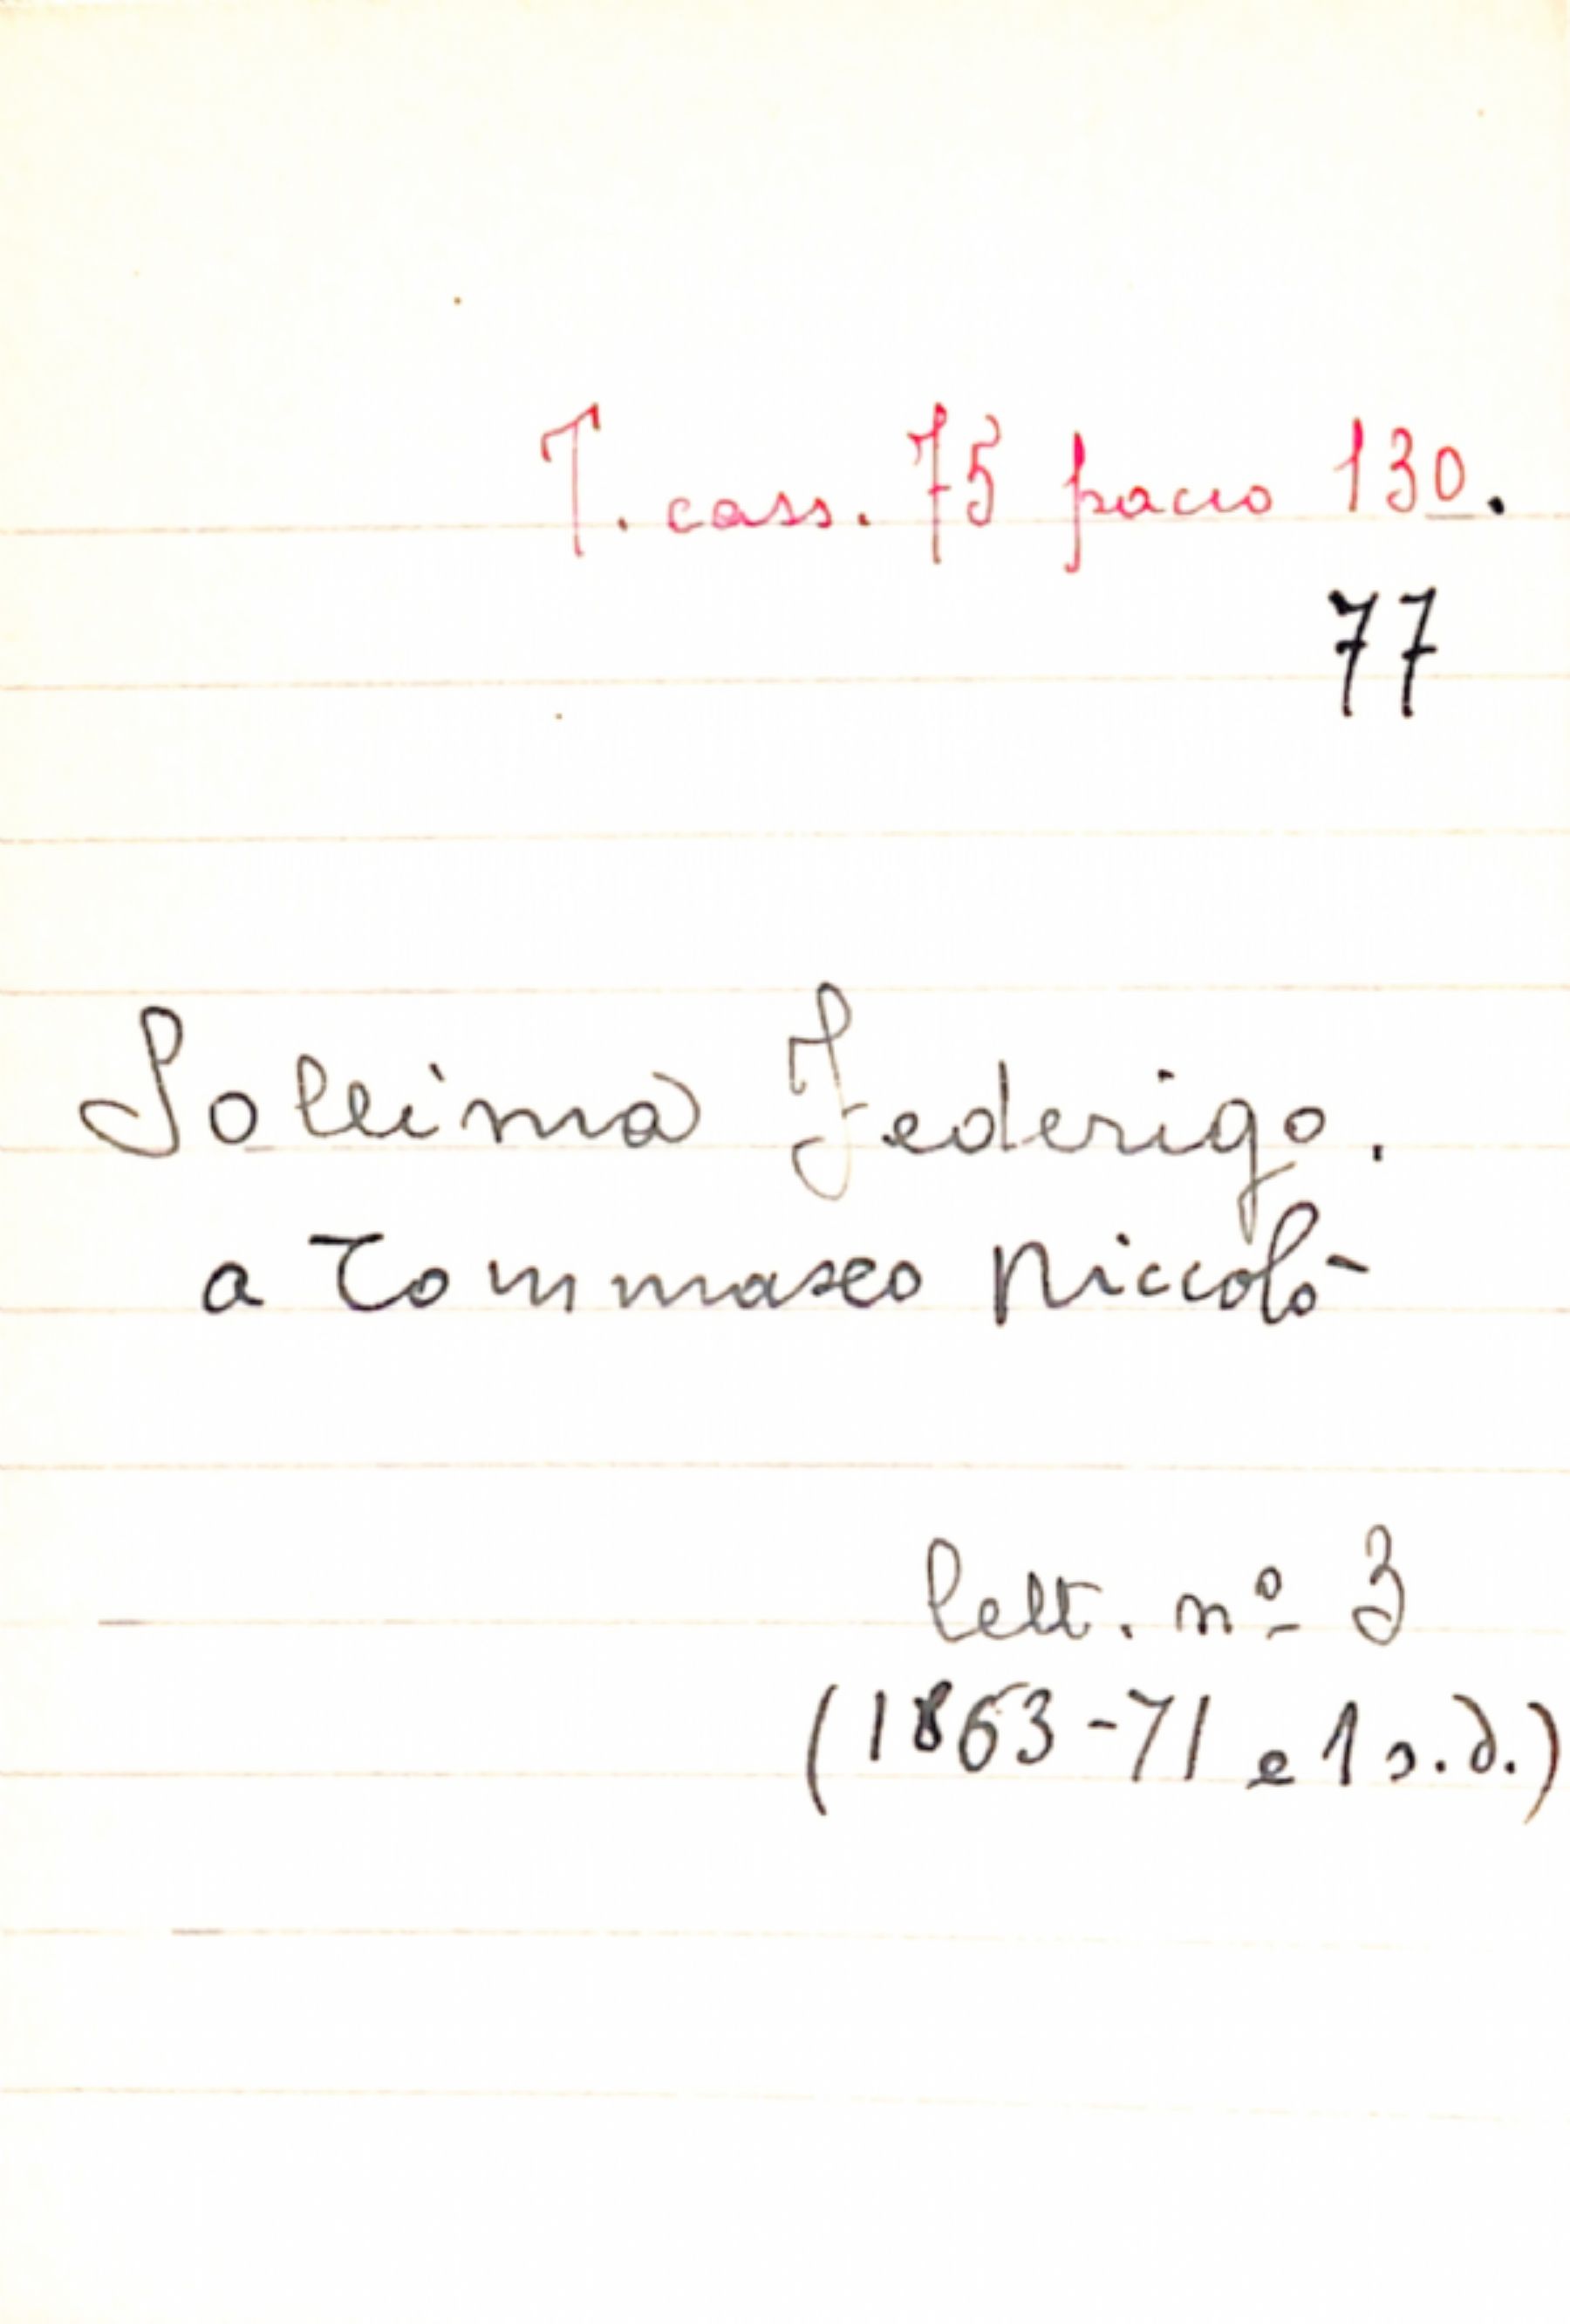 T. cass. 75 pacco 130.
77
Sollima Federigo.
a Tommaseo Niccolò
lett. nº 3
(1863-71 e 1 s.d.)